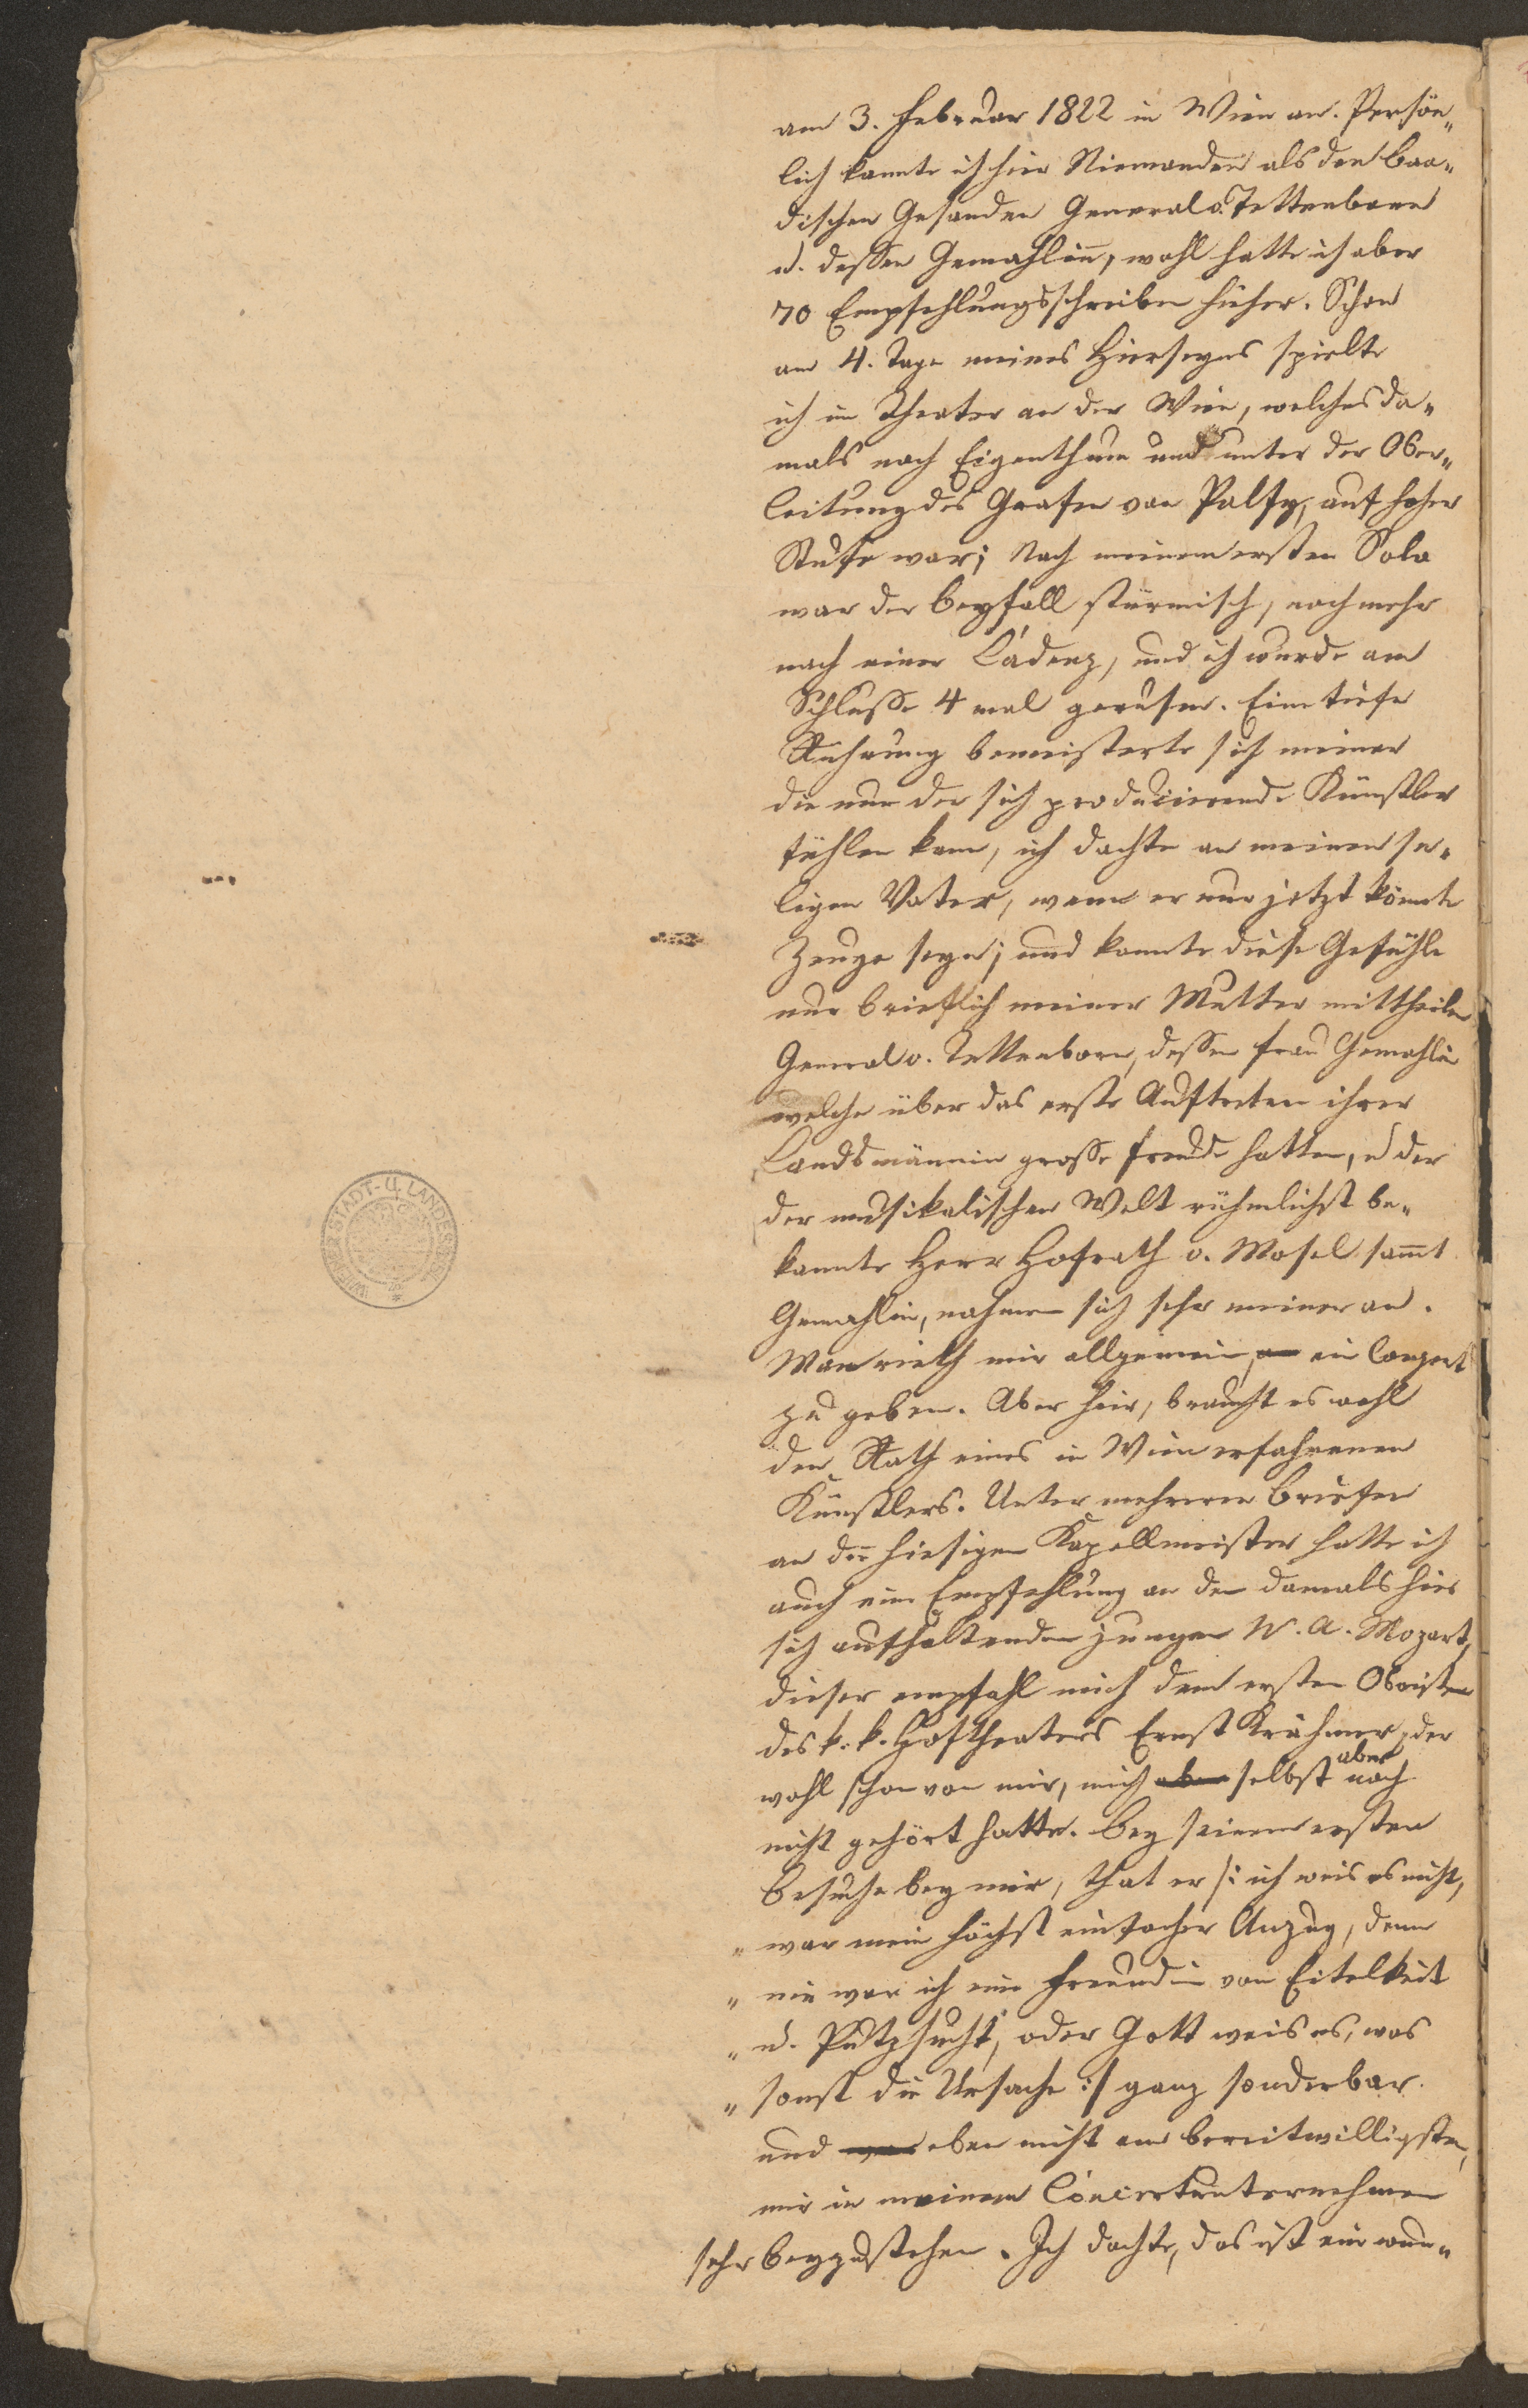 am 3. Februar 1822 in Wien an. Persön„
lich kannte ich hier Niemanden als den baa„
dischen Gesanden General v. Tettenborn
u. dessen Gemahlinn, wohl hatte ich aber
70 Empfehlungsschreiben hieher. Schon
am 4. Tage meines Hierseyns spielte
ich im Theater an der Wien, welches da„
mals noch Eigenthum und unter der Ober„
leitung des Grafen von Palfy, auf hoher
Stufe war; Nach meinem ersten Solo
war der Beyfall stürmisch, noch mehr
nach einer Cadenz, und ich wurde am
Schlusse 4 mal gerufen. Eine tiefe
Rührung bemeisterte sich meiner
die nur der sich producierende Künstler
fühlen kann, ich dachte an meinen se„
ligen Vater, wenn er nur jetzt könnte
Zeuge seyn; und konnte diese Gefühle
nur brieflich meiner Mutter mittheilen
General v. Tettenborn, dessen Frau Gemahlin
welche über das erste Auftreten ihrer
Landsmännin grosse Freude hatten, u der
der musikalischen Welt rühmlichst be„
kannte Herr Hofrath v. Mosel sammt
Gemahlin, nahmen sich sehr meiner an.
Man rieth mir allgemein, ein Conzert
zu geben. Aber hier, braucht es wohl
den Rath eines in Wien erfahrenen
Künstlers. Unter mehreren Briefen
an die hiesigen Kapellmeister hatte ich
auch eine Empfehlung an den damals hier
sich aufhaltenden jungen W. A. Mozart,
dieser empfahl mich dem ersten Oboisten
des k. k. Hoftheaters Ernst Krähmer, der
wohl schon von mir, mich aber selbst aber noch
nicht gehört hatte. Bey seinem ersten
Besuche bey mir, that er /: ich weis es nicht,
„ war mein höchst einfacher Anzug, denn
„ nie war ich eine Freundin von Eitelkeit
„ u. Putzsucht, oder Gott weis es, was
„ sonst die Ursache :/ ganz sonderbar
und eben nicht am bereitwilligsten,
mir in meinem Concertunternehmen
sehr beyzustehen. Ich dachte, das ist ein wun„
WIENER STADT- U. LANDESBIBL.